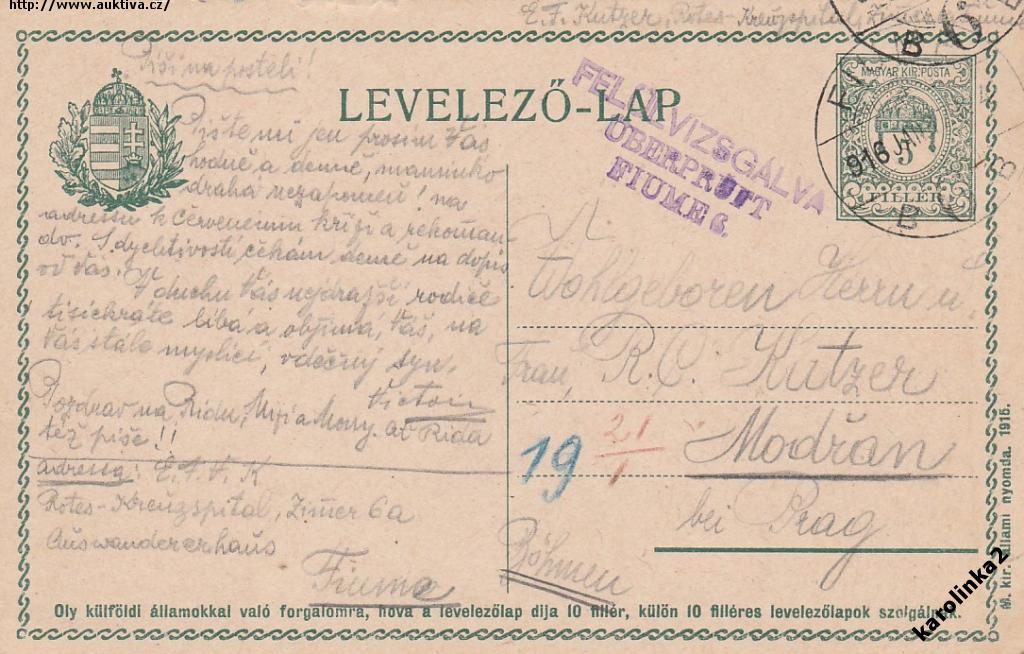 http://www.auktiva.cz/
E. F. Kutzer, Rotes-Kreuzspital,
Píši na posteli!
LEVELEZŐ-LAP
MAGYAR KIR. POSTA
5
FILLÉR
916 JAN
B
6
B
FELÜLVIZSGÁLVA
ÜBERPRÜFT
FIUME 6.
Pište mi jen prosím Vás
hodně a denně, maminko
drahá nezapomeň! na
adressu k červenému kříži a rekoman-
do. S dychtivostí čekám denně na dopis
od Vás.
V duchu Vás nejdražší rodiče
tisíckráte líbá a objímá, Váš, na
Vás stále myslící, vděčný syn.
Victoin
Pozdrav na Ridu, Mizi a Mony. at Rida
též píše!!
adressa: E. F. V. K
Rotes-Kreuzspital, Zimer 6a
Auswandererhaus
Fiume
Wohlgeboren Herrn u.
Frau, R. C. Kutzer
Modřan
bei Prag
Böhmen
19 21/1
Oly külföldi államokkal való forgalomra, hova a levelezőlap dija 10 fillér, külön 10 filléres levelezőlapok szolgálnak.
M. kir. állami nyomda. 1915.
karolinka2